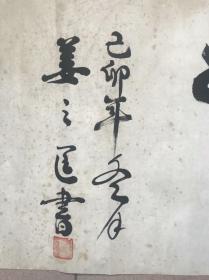 己卯年冬月
姜之匡書